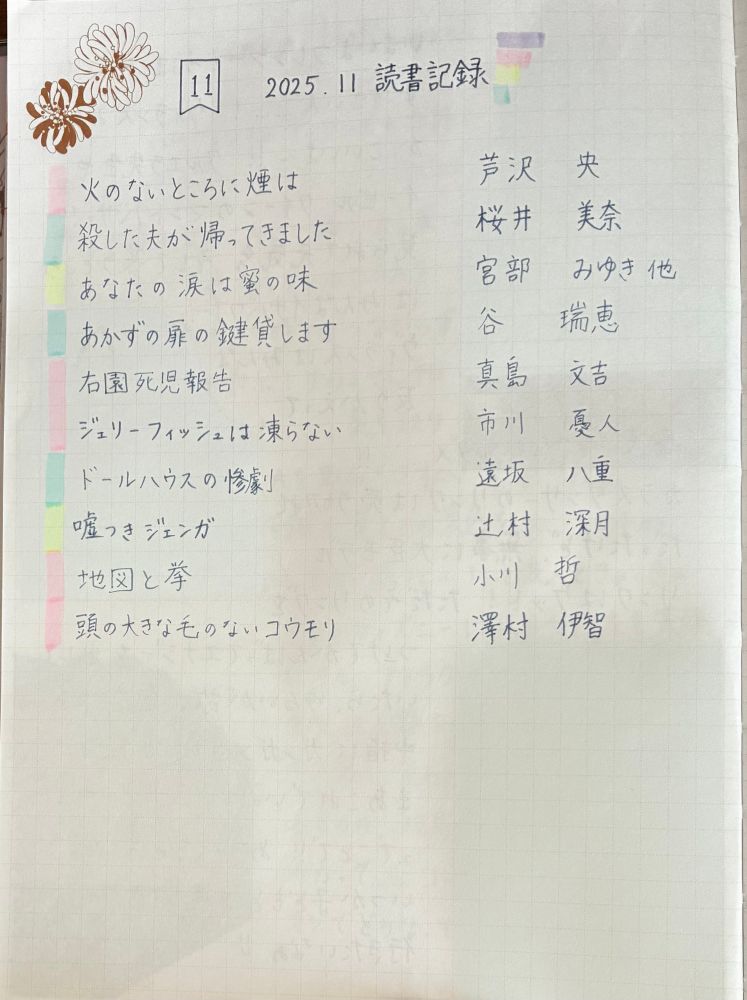 11 2025.11 読書記録
火のないところに煙は 芦沢 央
殺した夫が帰ってきました 桜井 美奈
あなたの涙は蜜の味 宮部 みゆき 他
あかずの扉の鍵貸します 谷 瑞恵
右園死児報告 真島 文吉
ジェリーフィッシュは凍らない 市川 憂人
ドールハウスの惨劇 遠坂 八重
嘘つきジェンガ 辻村 深月
地図と拳 小川 哲
頭の大きな毛のないコウモリ 澤村 伊智